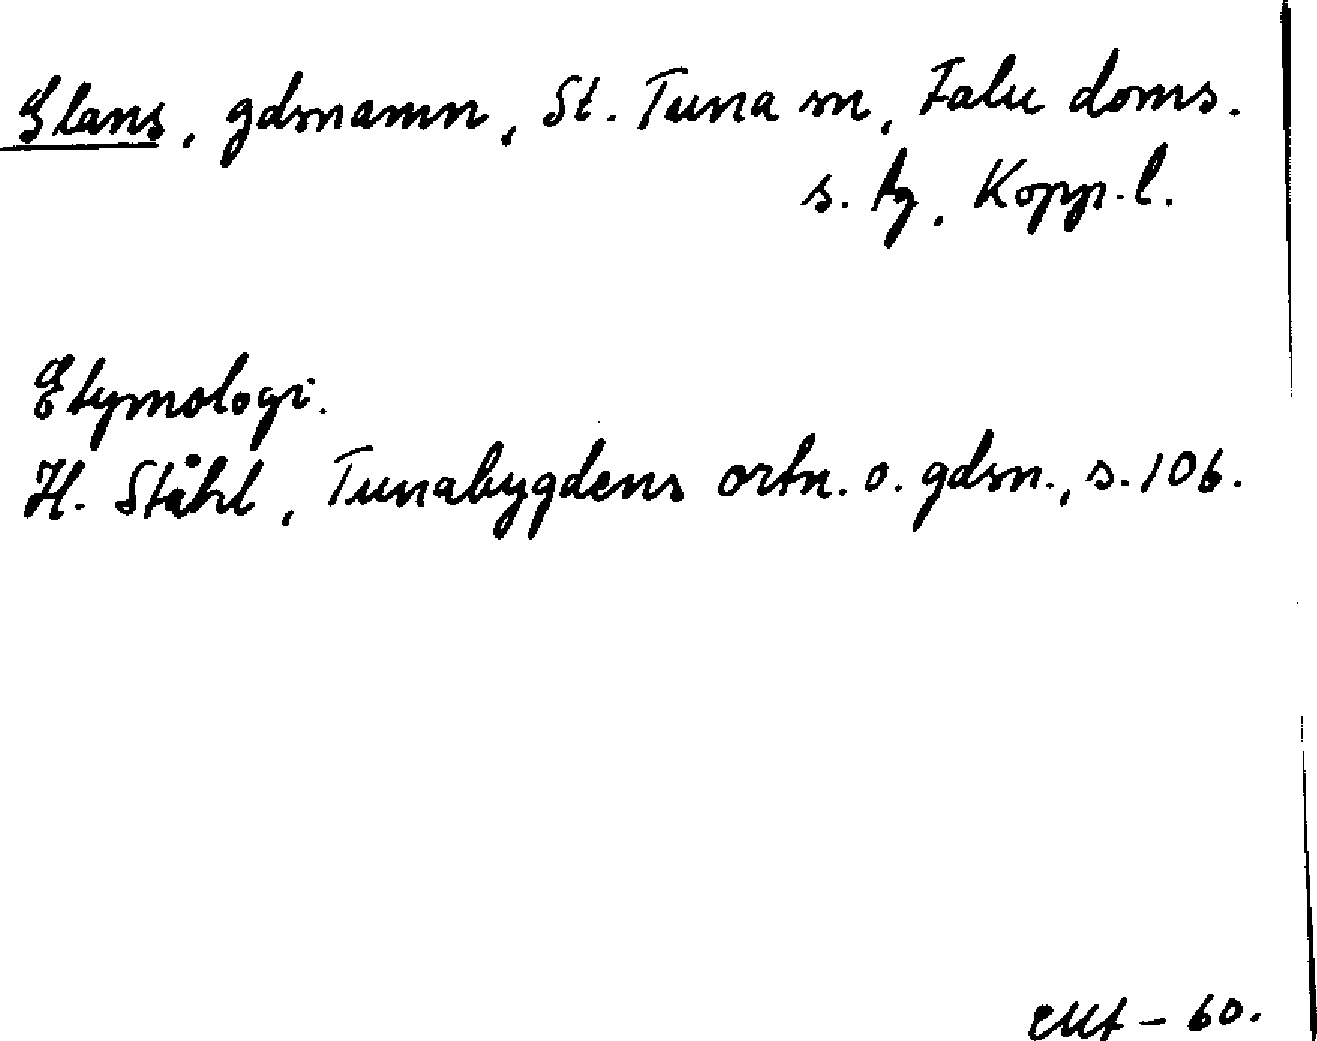 Glans, gdsnamn, St. Tuna sn, Falu doms.
s. tg, Kopp. l.
Etymologi.
H. Ståhl, Tunabygdens ortn. o. gdsn., s. 106.
- 60.